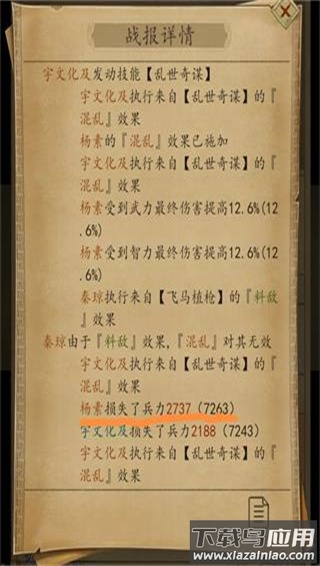 战报详情
宇文化及发动技能【乱世奇谋】
宇文化及执行来自【乱世奇谋】的『
混乱』效果
杨素的『混乱』效果已施加
宇文化及执行来自【乱世奇谋】的『
混乱』效果
杨素受到武力最终伤害提高12.6%(12
.6%)
杨素受到智力最终伤害提高12.6%(12
.6%)
秦琼执行来自【飞马植枪】的『料敌
』效果
秦琼由于『料敌』效果,『混乱』对其无效
宇文化及执行来自【乱世奇谋】的『
混乱』效果
杨素损失了兵力2737（7263）
宇文化及损失了兵力2188（7243）
宇文化及执行来自【乱世奇谋】的『
混乱』效果
下载鸟应用
www.xiazainiao.com